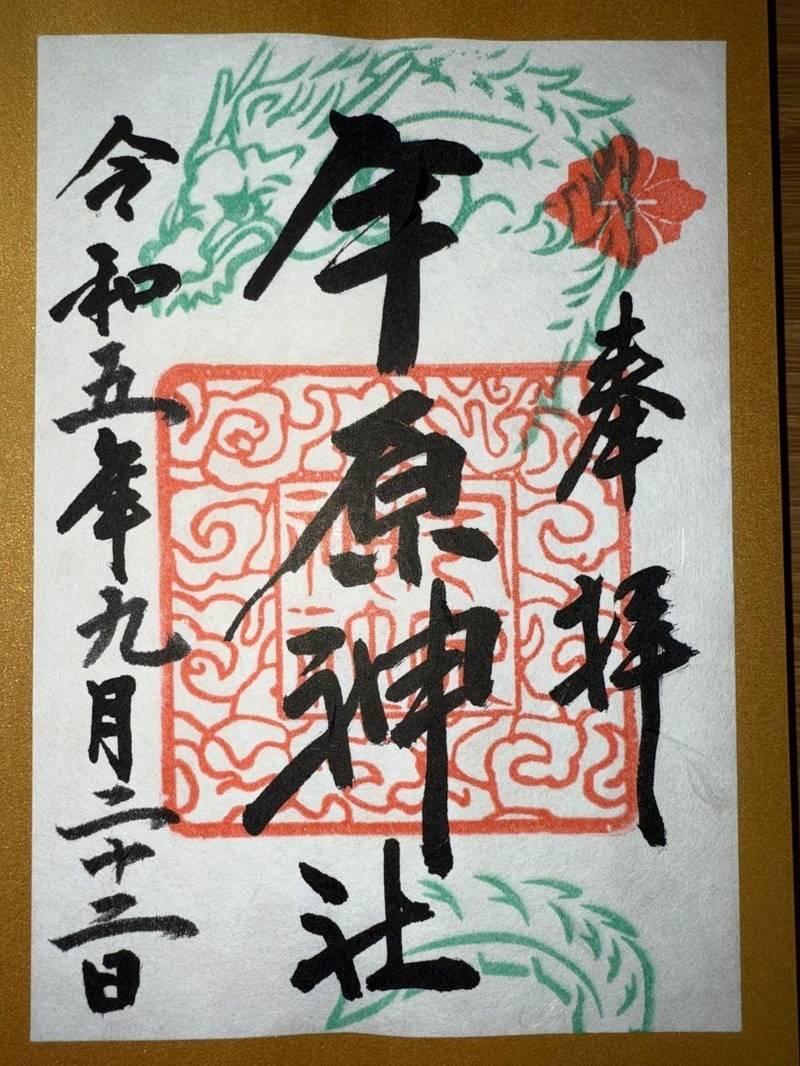 奉拝
年原神社
令和五年九月二十三日